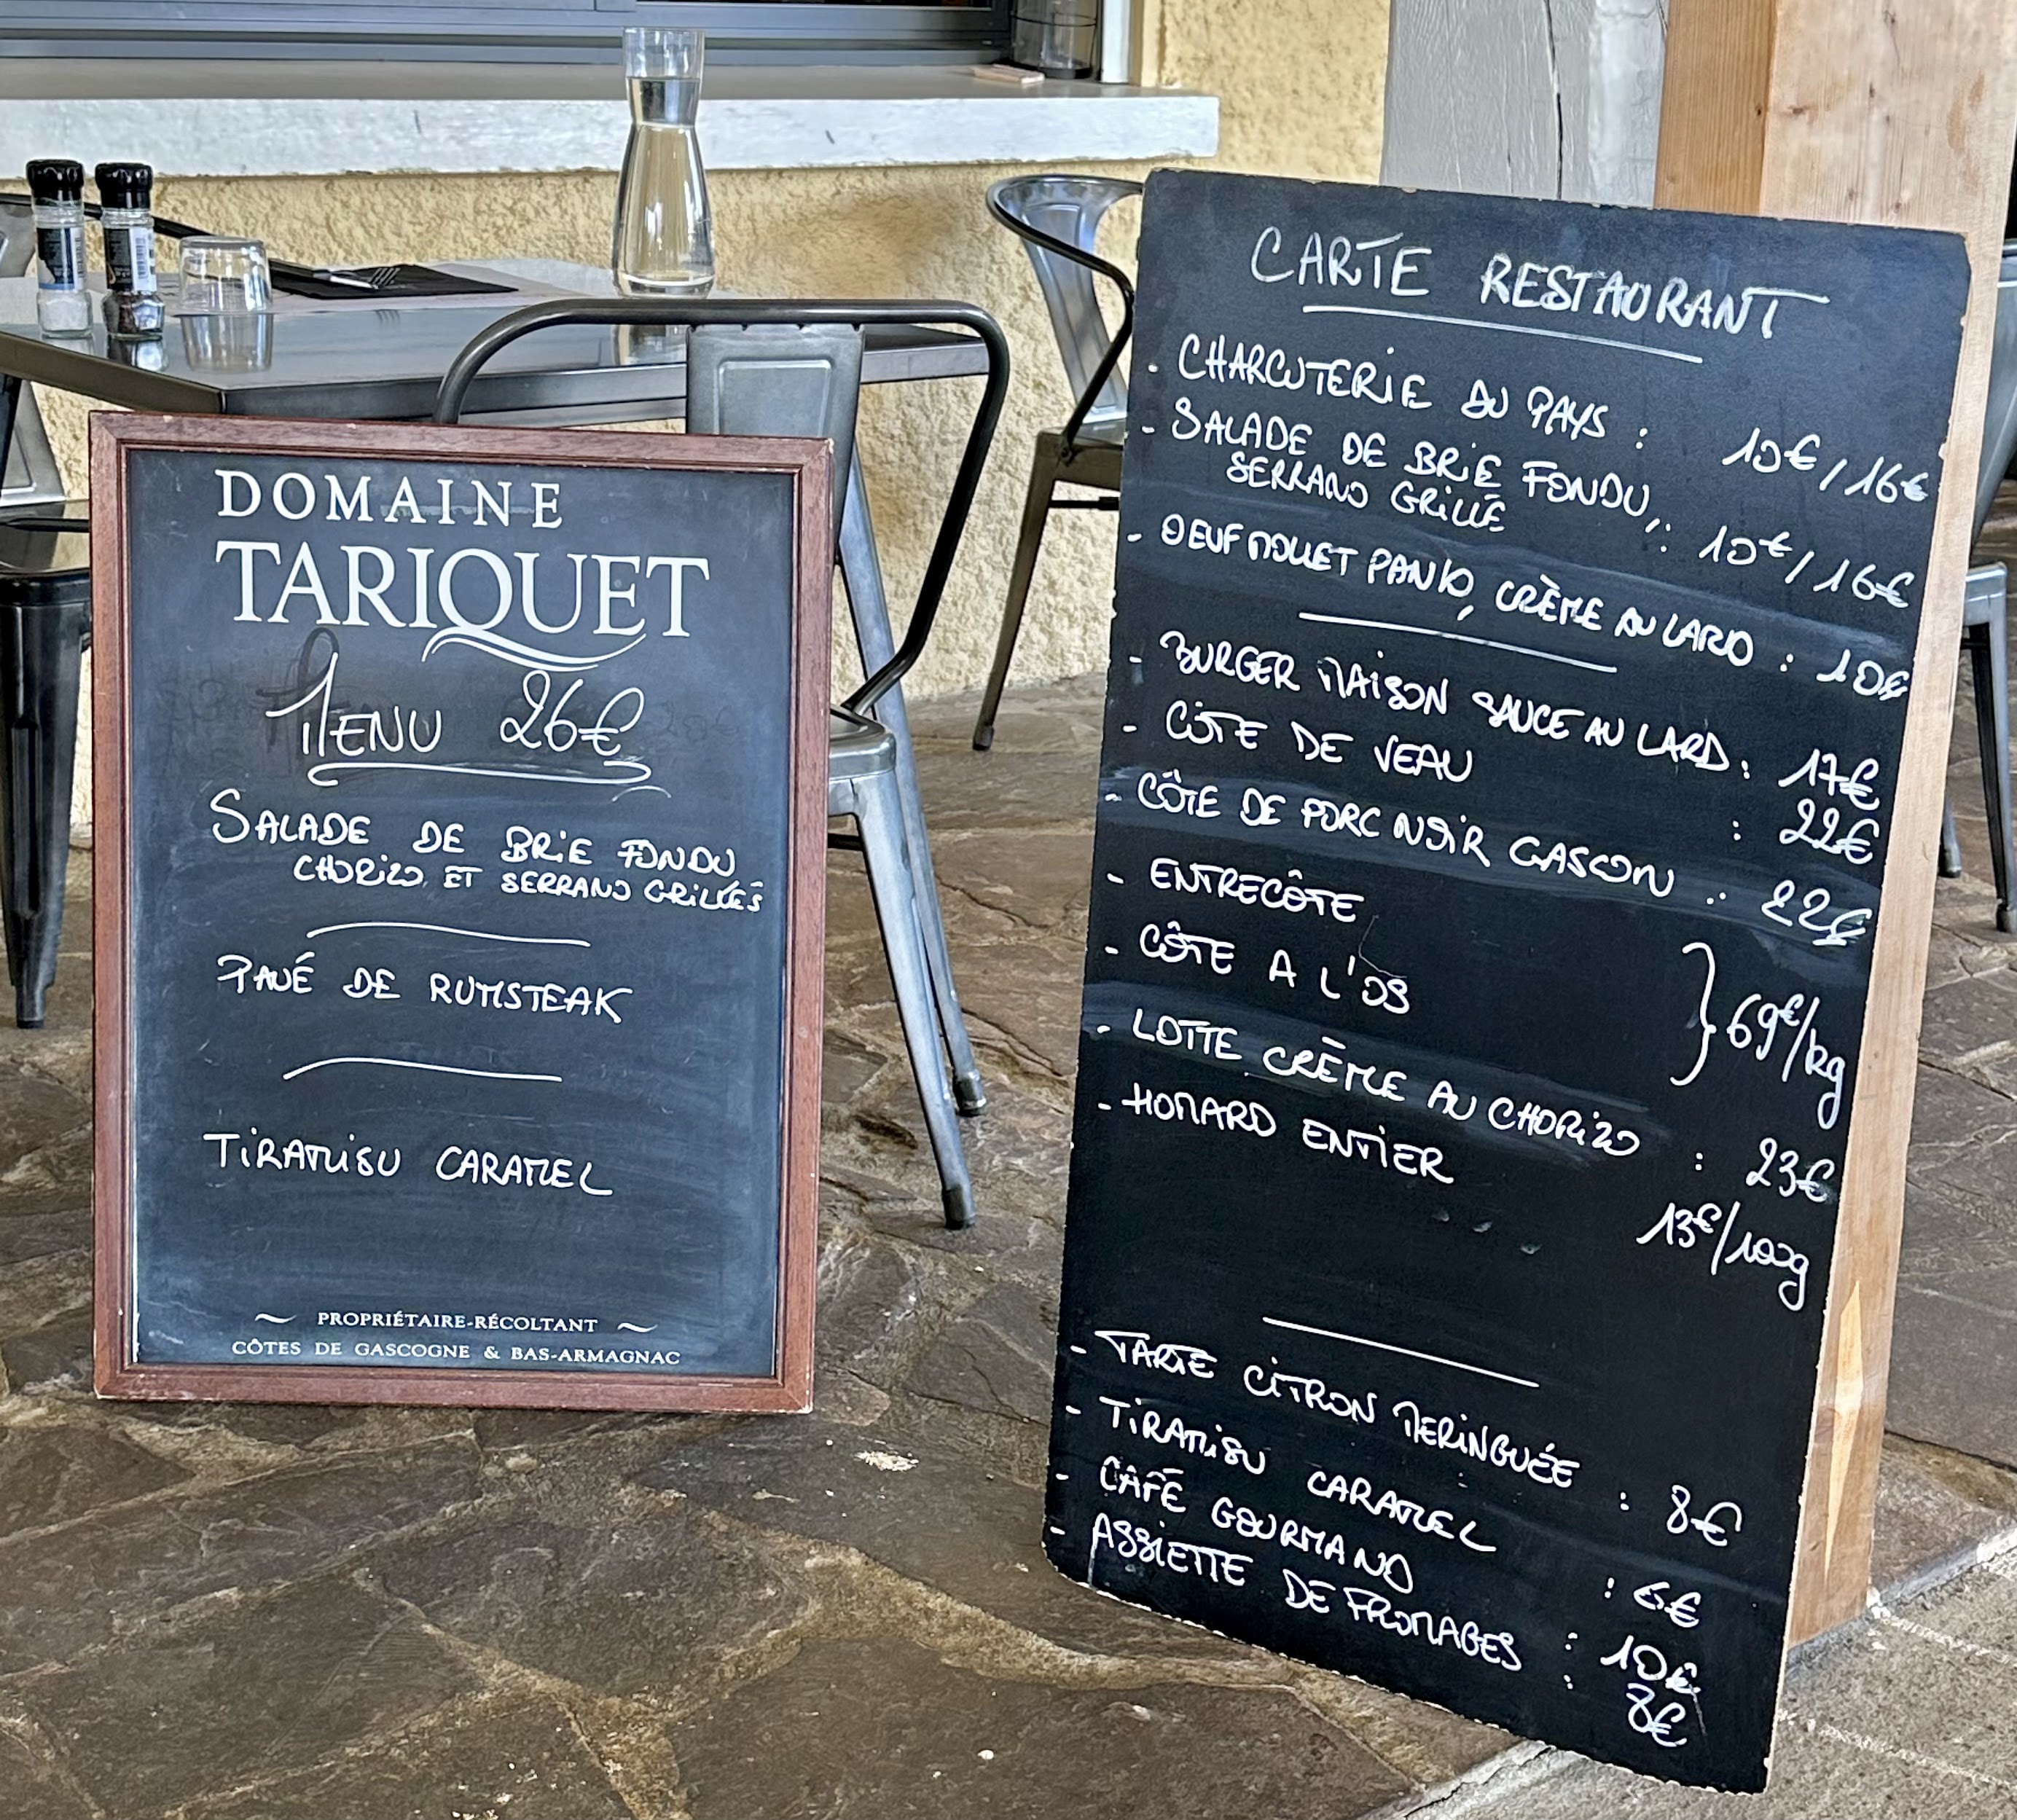 DOMAINE
TARIQUET
MENU 26€
SALADE DE BRIE FONDU
CHORIZO ET SERRANO GRILLÉS
PAVÉ DE RUMSTEAK
TIRAMISU CARAMEL
PROPRIÉTAIRE-RÉCOLTANT
CÔTES DE GASCOGNE & BAS-ARMAGNAC
CARTE RESTAURANT
- CHARCUTERIE DU PAYS : 10€/16€
- SALADE DE BRIE FONDU,
SERRANO GRILLÉ : 10€/16€
- OEUF MOLLET PANKO, CRÈME AU LARD : 10€
- BURGER MAISON SAUCE AU LARD : 17€
- CÔTE DE VEAU : 22€
- CÔTE DE PORC NOIR GASCON : 22€
- ENTRECÔTE
- CÔTE A L'OS } 69€/kg
- LOTTE CRÈME AU CHORIZO : 23€
- HOMARD ENTIER
13€/100g
- TARTE CITRON MERINGUÉE : 8€
- TIRAMISU CARAMEL : 6€
- CAFÉ GOURMAND : 10€
- ASSIETTE DE FROMAGES : 8€